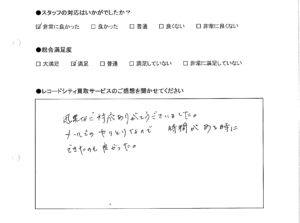 ●スタッフの対応はいかがでしたか？
☑非常に良かった □良かった □普通 □良くない □非常に良くない
●総合満足度
□大満足 ☑満足 □普通 □満足していない □非常に満足していない
●レコードシティ買取サービスのご感想を聞かせてください
迅速なご対応ありがとうございました。
メールでのやりとりなので 時間がある時に
できたのも良かった。